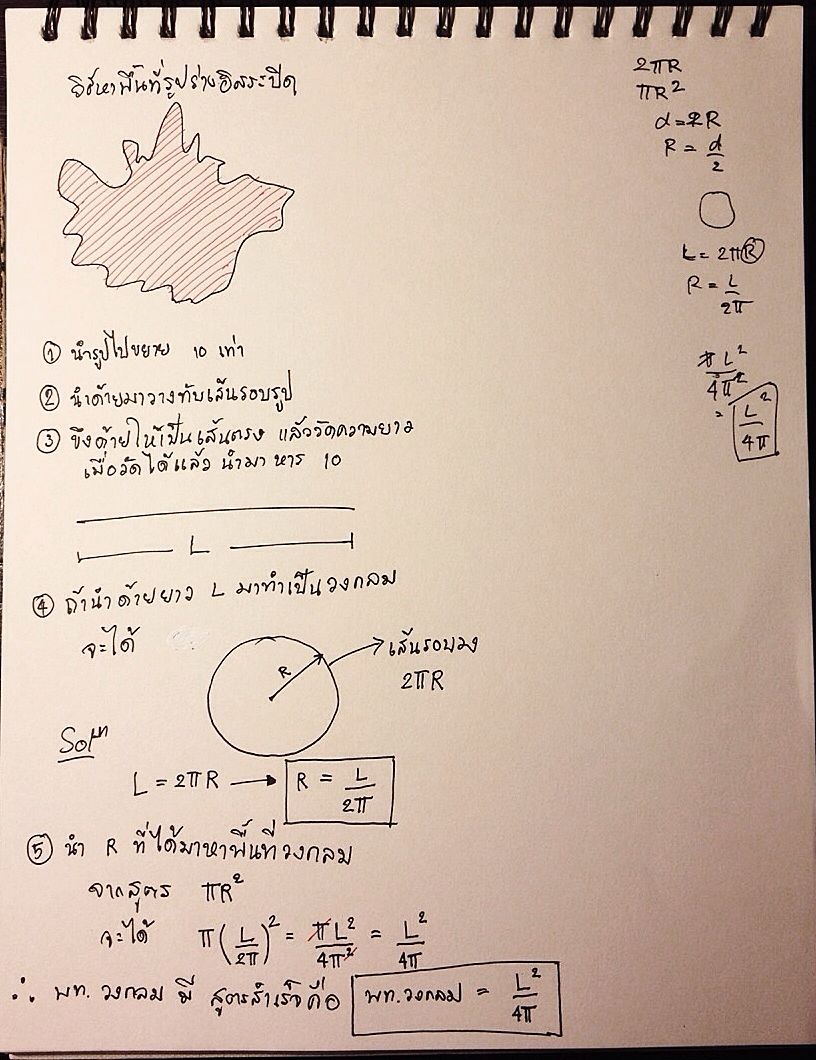 วิธีหาพื้นที่รูปร่างอิสระปิด
① นำรูปไปขยาย 10 เท่า
② นำด้ายมาวางทับเส้นรอบรูป
③ ขึงด้ายให้เป็นเส้นตรง แล้ววัดความยาว
เมื่อวัดได้แล้ว นำมา หาร 10
L
④ ถ้านำด้ายยาว L มาทำเป็นวงกลม
จะได้
R
เส้นรอบวง
2πR
Solⁿ
L = 2πR → R = L/2π
⑤ นำ R ที่ได้มาหาพื้นที่วงกลม
จากสูตร πR²
จะได้ π(L/2π)² = πL²/4π² = L²/4π
∴ พท. วงกลม มี สูตรสำเร็จคือ พท.วงกลม = L²/4π
2πR
πR²
d = 2R
R = d/2
L = 2πR
R = L/2π
πL²/4π²
= L²/4π